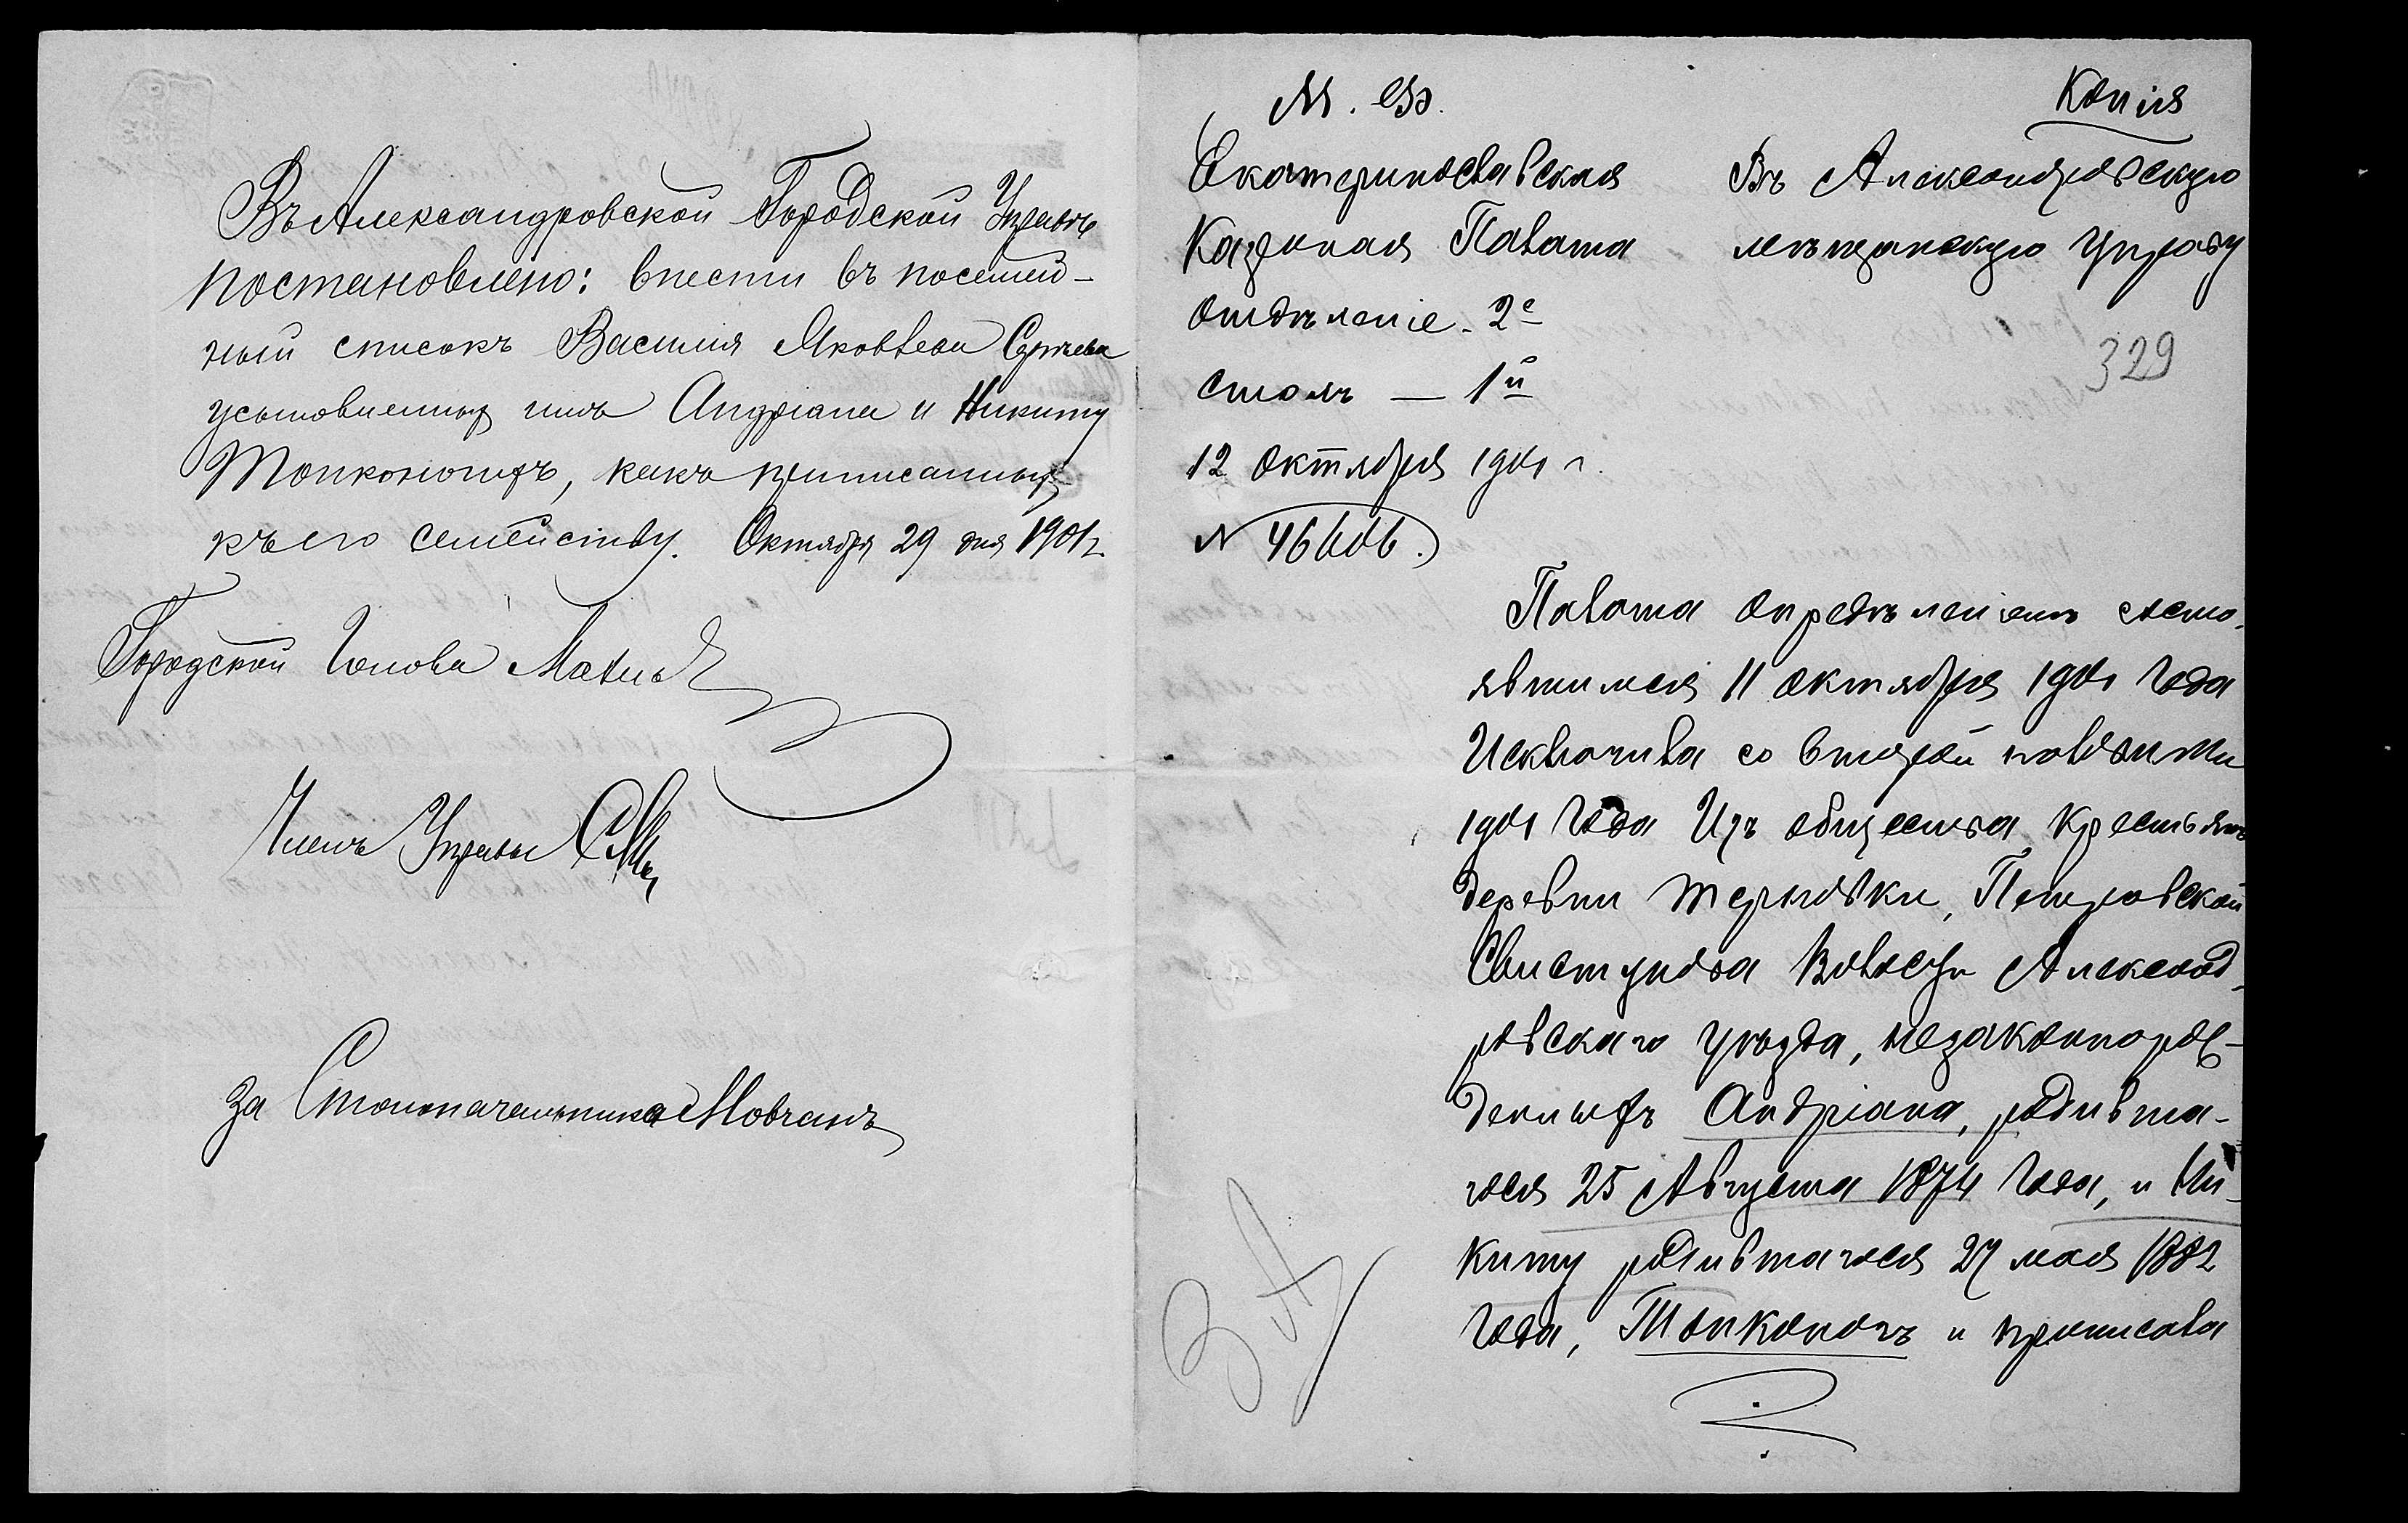 Въ Александровской Городской Управѣ
постановлено: внести въ посемей-
ный списокъ Василія Яковлева Сергѣева
усыновленныхъ имъ Андріана и Никиту
Топконогихъ, какъ приписанныхъ
къ его семейству. Октября 29 дня 1901 г.
Городской Голова
Членъ Управы
За Столоначальника Мовчанъ
М. Ф.
Копія
Екатеринославская
Казенная Палата
Отдѣленіе 2е
Столъ — 1й
12 Октября 1901 г.
№ 46606.
Въ Александровскую
мѣщанскую Управу
329
Палата опредѣленіемъ состо-
явшимся 11 Октября 1901 года
Исключила со второй половины
1901 года Изъ общества крестьянъ
деревни Терновки, Петровской
Свистунова Волости Александ-
ровскаго уѣзда, незаконорож-
денныхъ Андріана, родивша-
гося 25 Августа 1874 года, и Ни-
киту родившагося 27 мая 1882
года, Топконогъ и приписала